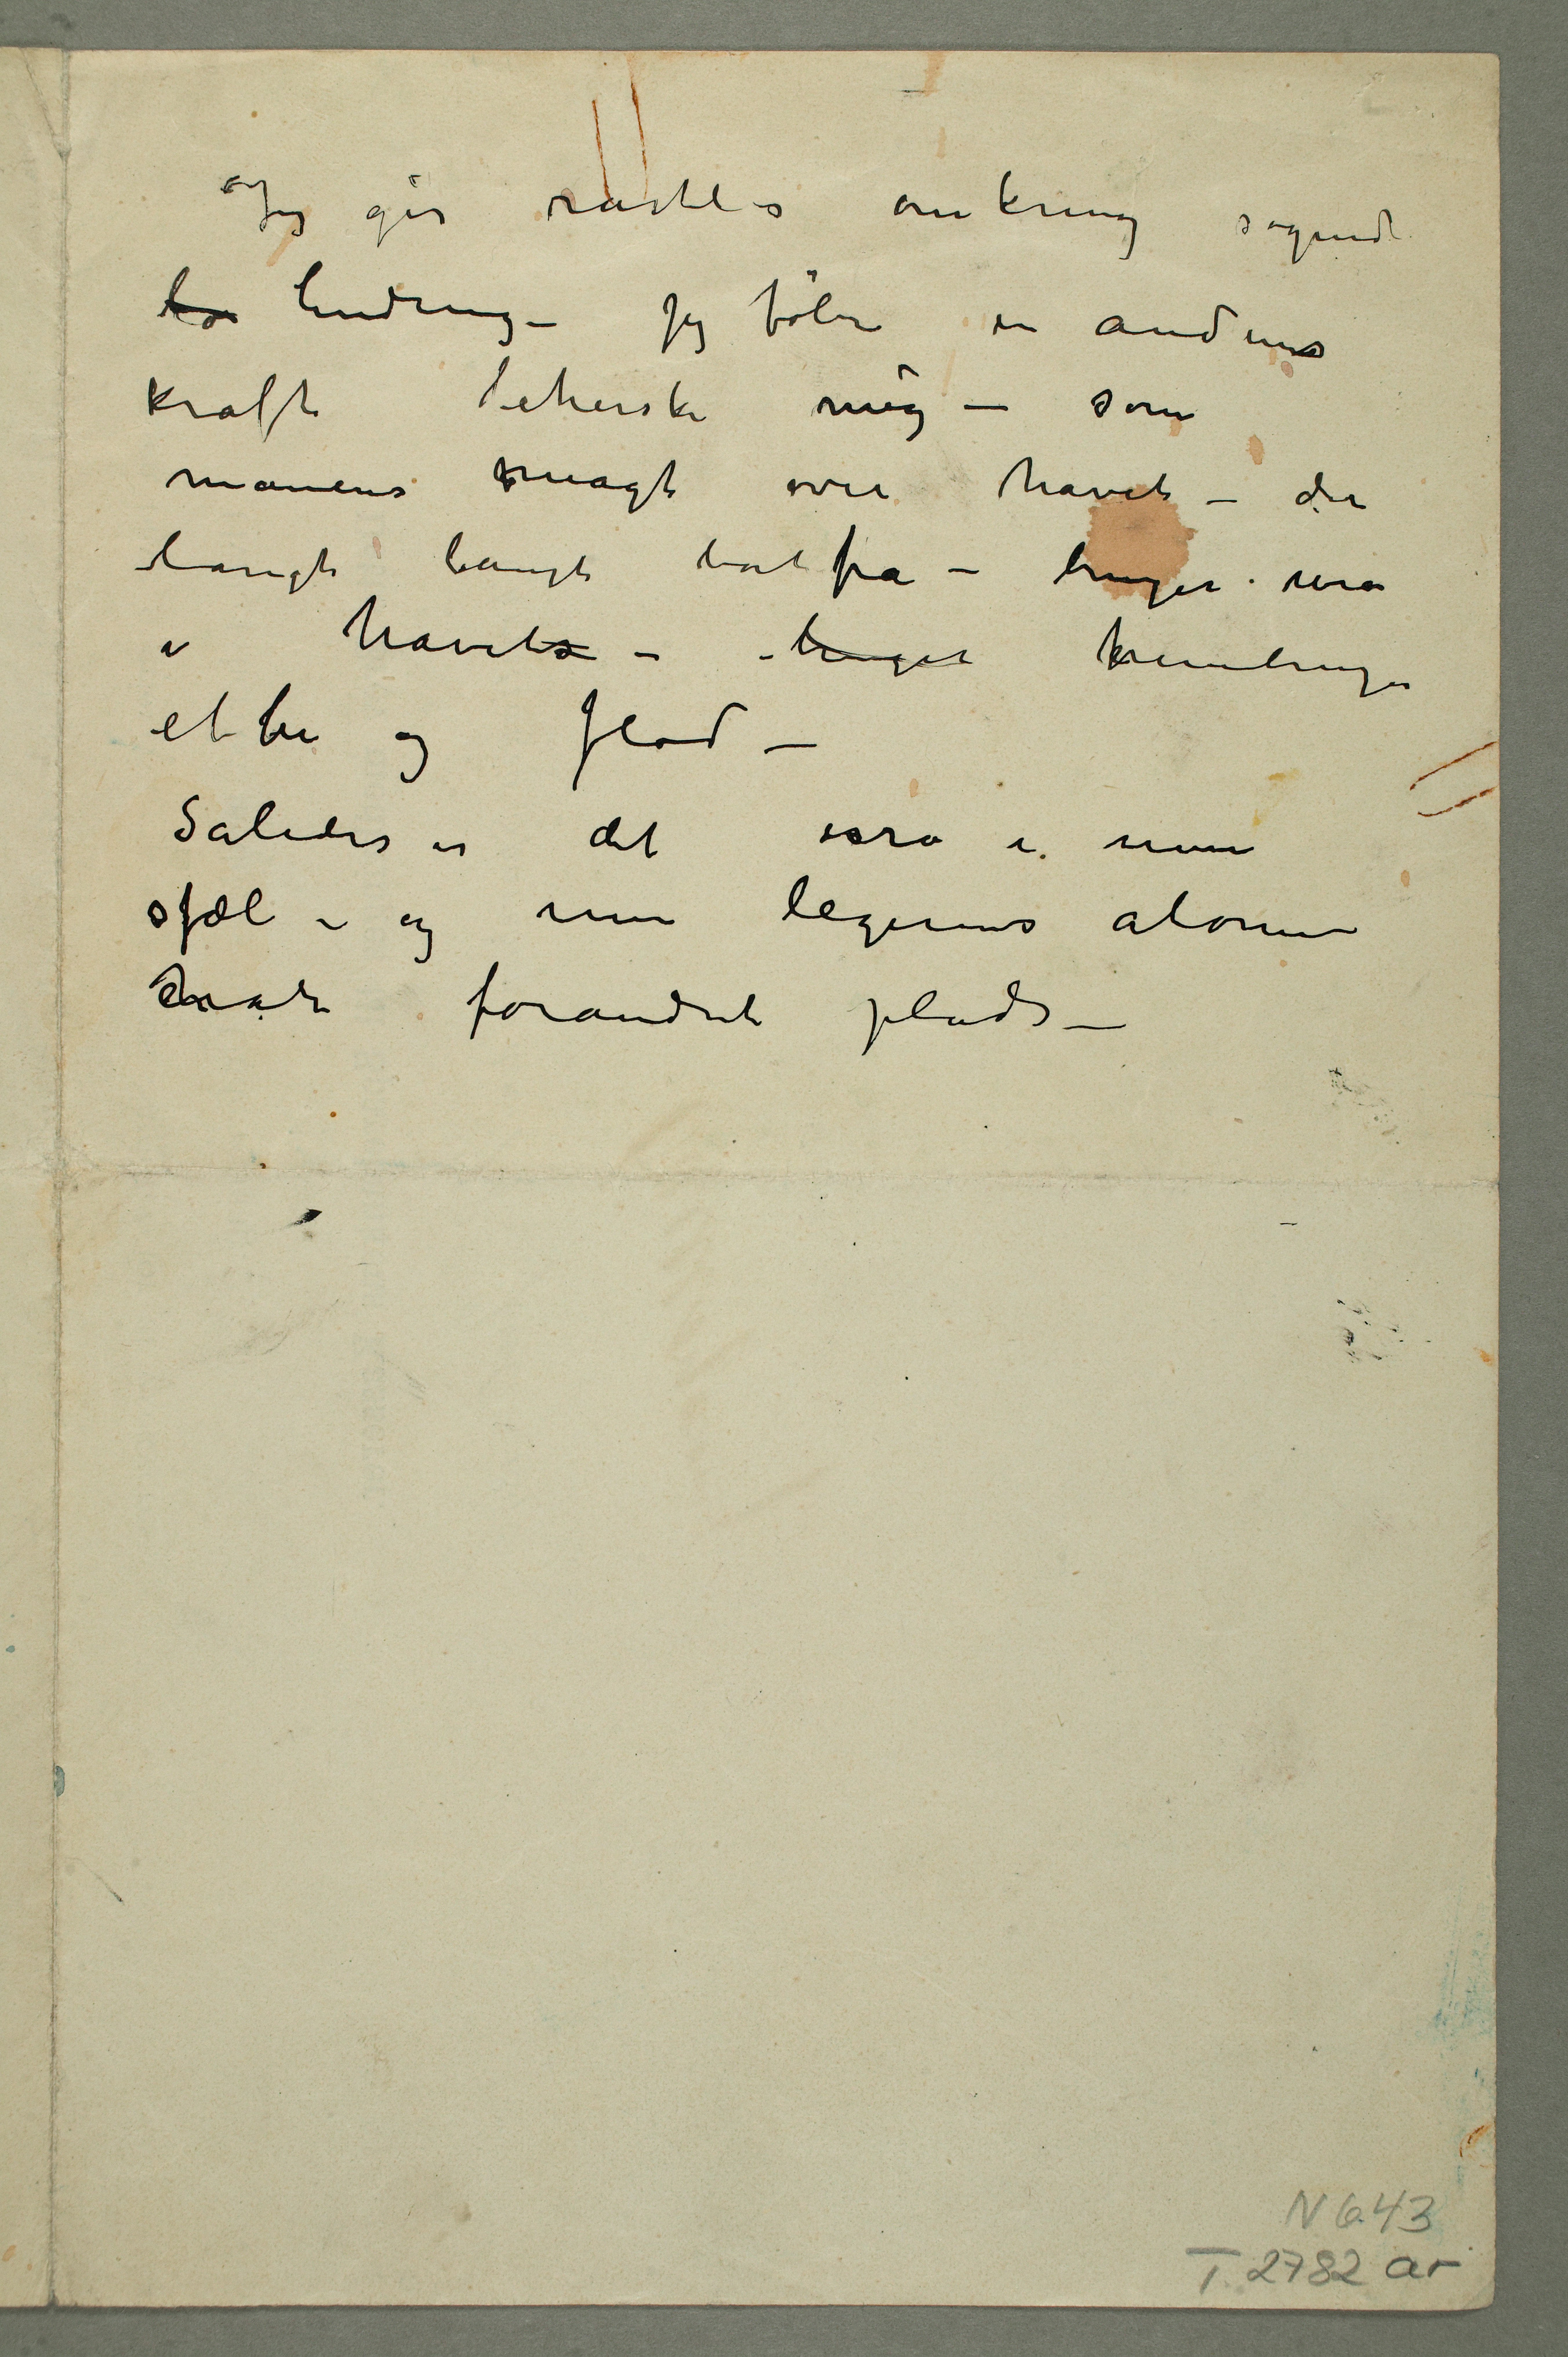 Jeg går rastløs omkring søgende
lindring – Jeg føler en andens
kraft beherske mig – som
månens magt over havet – der
langt langt bort fra – bringer uro
i havet – bringer frembringer
ebbe og flod –
Således er det uro i min
sjæl – og min legems atomer
har forandret plads –
N 643
T 2782 ar